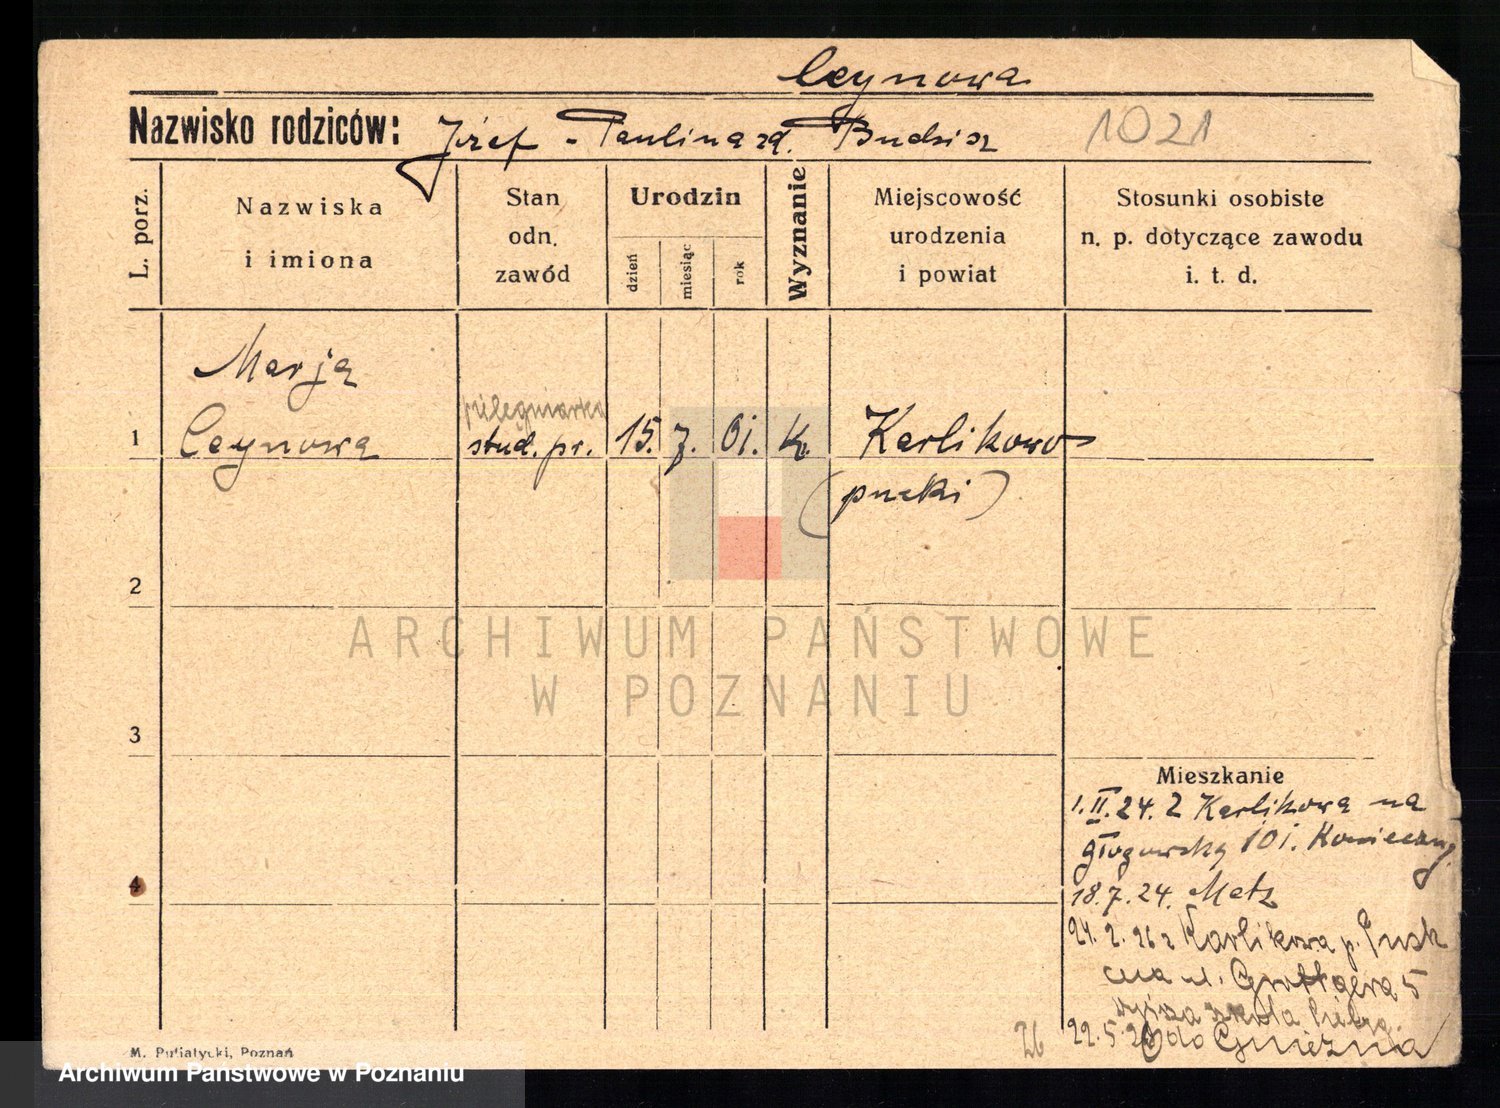 Ceynowa
Nazwisko rodziców: Józef - Paulina zd. Budzisz 1021
L. porz.
Nazwiska
i imiona
Stan
odn.
zawód
Urodzin
dzień
miesiąc
rok
Wyznanie
Miejscowość
urodzenia
i powiat
Stosunki osobiste
n. p. dotyczące zawodu
i. t. d.
Marja
pielęgniarka
1 Ceynowa stud. pr. 15. 7. 01. K. Karlikowo
(pucki)
2
ARCHIWUM PAŃSTWOWE
W POZNANIU
3
Mieszkanie
1. II. 24. z Karlikowa na
Głogowską 101. Konieczny.
4
18.7.24. Metz
24. 2. 26 z Karlikowa p. Pusk
na ul. Grottgera 5
wyższa szkoła
26 22.5. do Gniezna
M. Putiatycki, Poznań
Archiwum Państwowe w Poznaniu